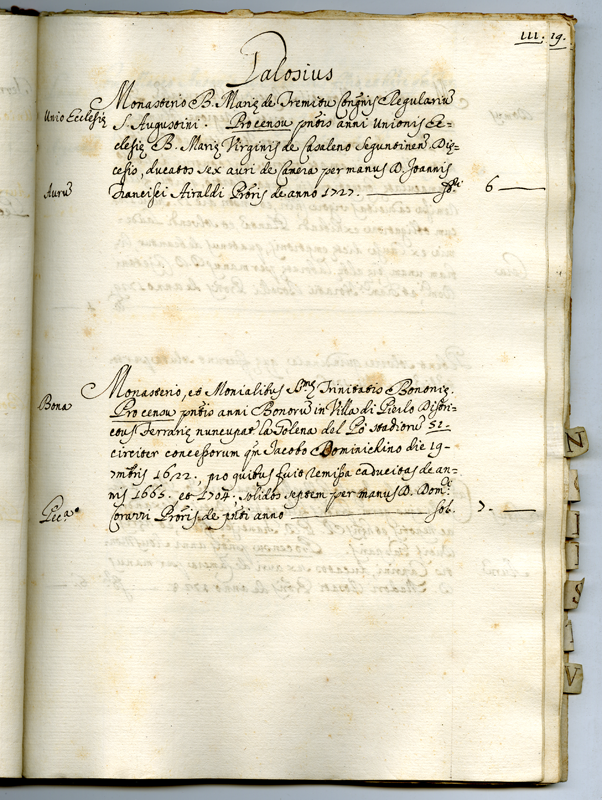 III. 19.
Jalosius
Monasterio B. Mariȩ de Tremitu Congnis Regulariũ
Unio Ecclesiȩ
S. Augustini. Pro censu pntis anni Unionis Ec=
clesiȩ B. Mariȩ Virginis de Casaleno Seguntinen Diȩ=
cesio, ducatos sex auri de Camera per manus D. Joannis
Aurũ
Francisci Airaldi Proris de anno 1727. 6
Monasterio, et Monialibus Smȩ Trinitatis Bononiȩ.
Bona
Pro censu pntis anni Bonorũ in Villa di
Ferrariȩ nuncupat la Tolena del Pò stadiorũ 51.
circiter concessorum qm Jacobo Dominichino die 19
mbris 1622, pro quibus fuit remissa caducitas de an=
nis 1665. et 1704. solidos septem per manus D. Domci
Corazzi Proris de pnti anno sol. 7.
N
S
V